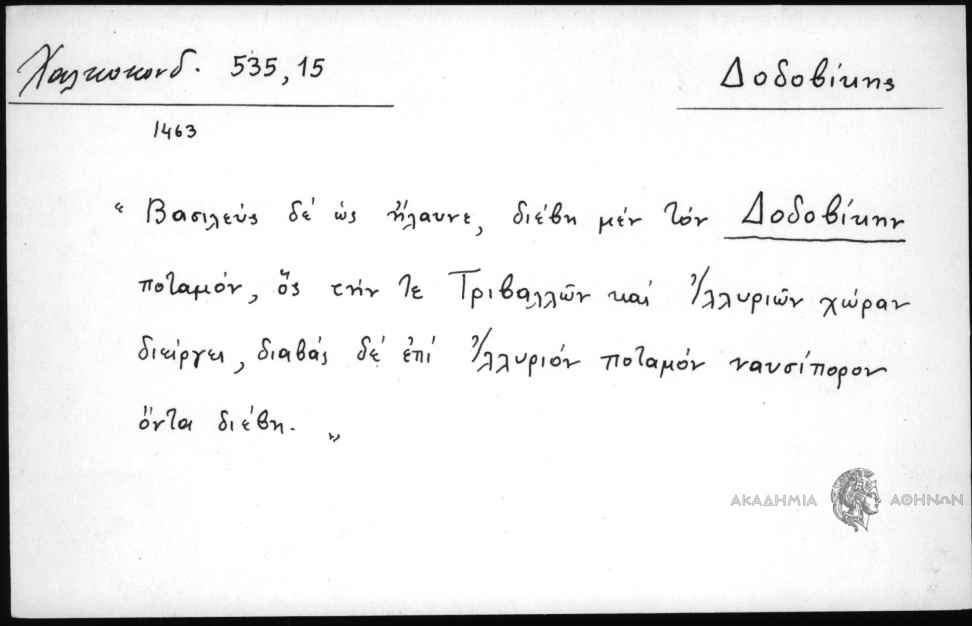 Χαλκοκονδ. 535,15
Δοδοβίκης
1463
“ Βασιλεύς δέ ὡς ἤλαυνε, διέβη μέν τόν Δοδοβίκην
ποταμόν, ὅς τήν τε Τριβαλλῶν καί Ἰλλυριῶν χώραν
διείργει, διαβάς δέ ἐπί Ἰλλυριόν ποταμόν ναυσίπορον
ὄντα διέβη. „
ΑΚΑΔΗΜΙΑ ΑΘΗΝΩΝ